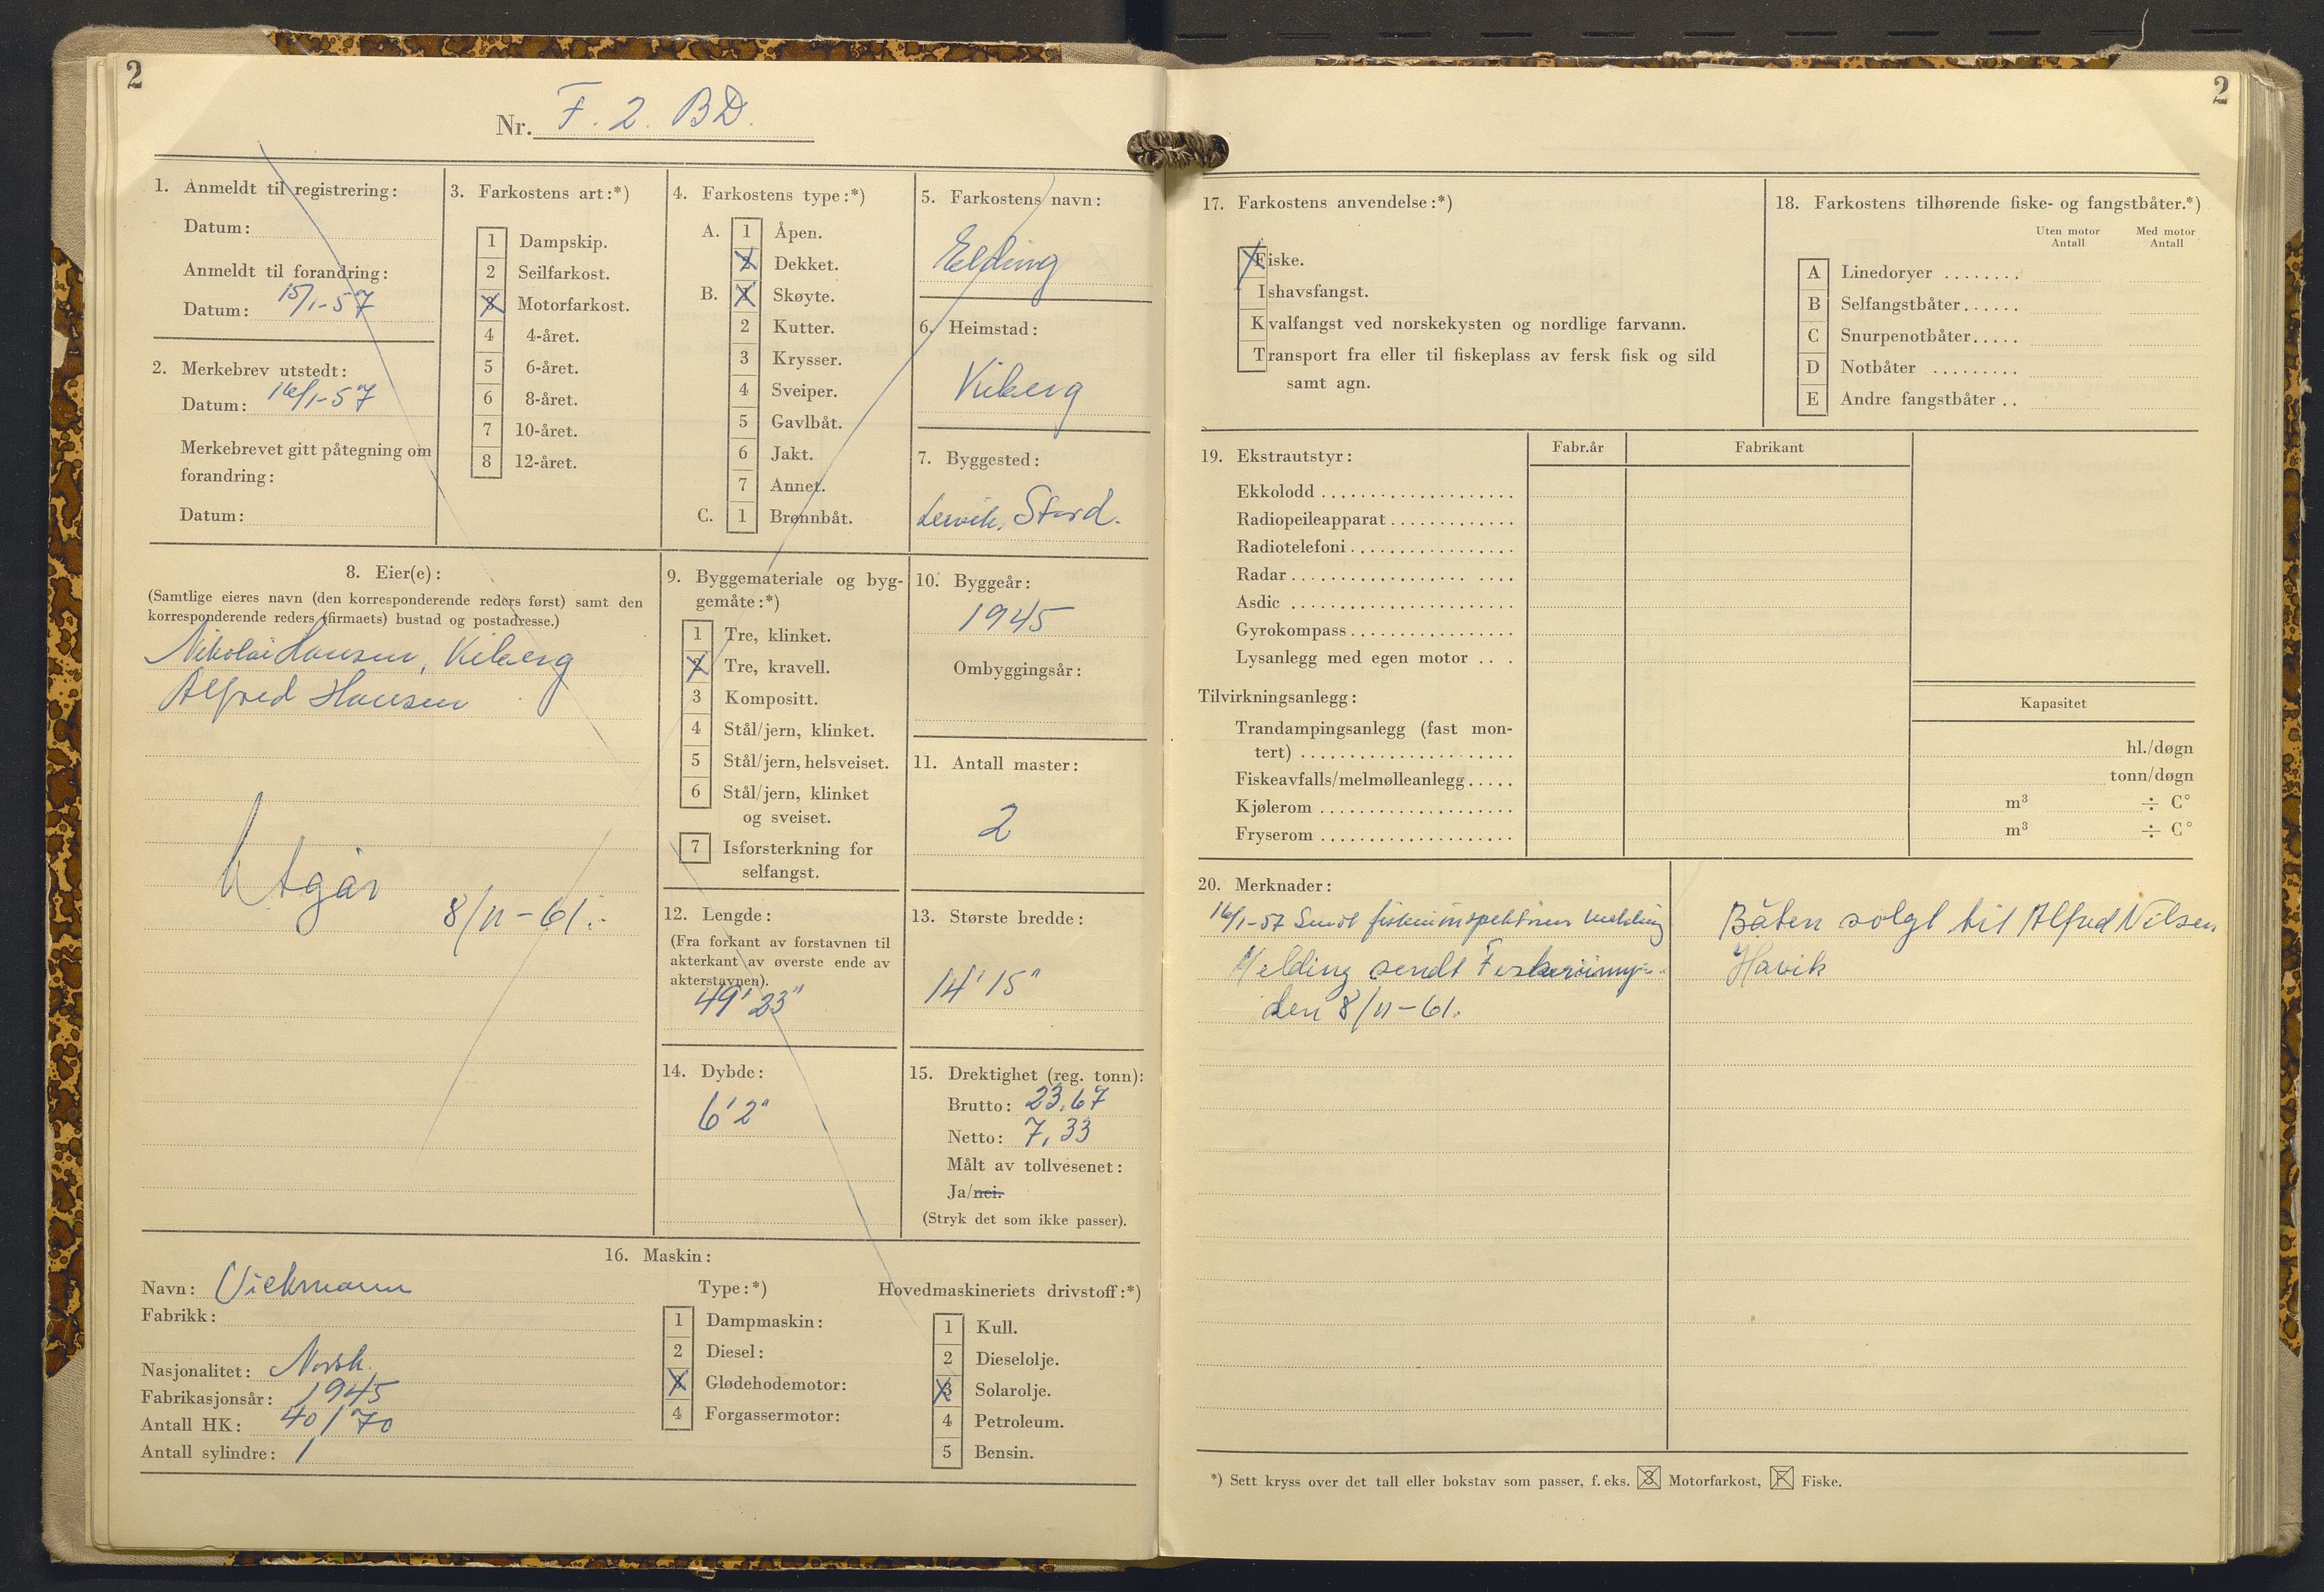 2
Nr. F. 2. BD.
1. Anmeldt til registrering:
Datum:
Anmeldt til forandring:
Datum: 15/1-57
2. Merkebrev utstedt:
Datum: 16/1-57
Merkebrevet gitt påtegning om
forandring:
Datum:
3. Farkostens art:*)
1 Dampskip.
2 Seilfarkost.
3 Motorfarkost.
4 4-året.
5 6-året.
6 8-året.
7 10-året.
8 12-året.
4. Farkostens type:*)
A. 1 Åpen.
2 Dekket.
B. 1 Skøyte.
2 Kutter.
3 Krysser.
4 Sveiper.
5 Gavlbåt.
6 Jakt.
7 Annet.
C. 1 Brønnbåt.
5. Farkostens navn:
Elding
6. Heimstad:
Kiberg
7. Byggested:
Lervik, Stord.
8. Eier(e):
(Samtlige eieres navn (den korresponderende reders først) samt den
korresponderende reders (firmaets) bustad og postadresse.)
Nikolai Hansen, Kiberg
Alfred Hansen
Utgår 8/11-61.
9. Byggemateriale og byg-
gemåte:*)
1 Tre, klinket.
2 Tre, kravell.
3 Kompositt.
4 Stål/jern, klinket.
5 Stål/jern, helsveiset.
6 Stål/jern, klinket
og sveiset.
7 Isforsterkning for
selfangst.
10. Byggeår:
1945
Ombyggingsår:
11. Antall master:
2
12. Lengde:
(Fra forkant av forstavnen til
akterkant av øverste ende av
akterstavnen).
49' 23"
13. Største bredde:
14' 15"
14. Dybde:
6' 2"
15. Drektighet (reg. tonn):
Brutto: 23,67
Netto: 7,33
Målt av tollvesenet:
Ja/nei.
(Stryk det som ikke passer).
16. Maskin:
Navn: Vickmann
Fabrikk:
Nasjonalitet: Norsk.
Fabrikasjonsår: 1945
Antall HK: 40/70
Antall sylindre: 1
Type:*)
1 Dampmaskin:
2 Diesel:
3 Glødehodemotor:
4 Forgassermotor:
Hovedmaskineriets drivstoff:*)
1 Kull.
2 Dieselolje.
3 Solarolje.
4 Petroleum.
5 Bensin.
2
17. Farkostens anvendelse:*)
Fiske.
Ishavsfangst.
Kvalfangst ved norskekysten og nordlige farvann.
Transport fra eller til fiskeplass av fersk fisk og sild
samt agn.
18. Farkostens tilhørende fiske- og fangstbåter.*)
Uten motor Med motor
Antall Antall
A Linedoryer ........
B Selfangstbåter......
C Snurpenotbåter.....
D Notbåter .........
E Andre fangstbåter ..
19. Ekstrautstyr: Fabr.år Fabrikant
Ekkolodd ....................
Radiopeileapparat .............
Radiotelefoni .................
Radar .................. ....
Asdic .......................
Gyrokompass .................
Lysanlegg med egen motor .. .
Tilvirkningsanlegg: Kapasitet
Trandampingsanlegg (fast mon-
tert) ...................... hl./døgn
Fiskeavfalls/melmølleanlegg ..... tonn/døgn
Kjølerom .................... m³ ÷ C°
Fryserom .................... m³ ÷ C°
20. Merknader:
16/1-57 Sendt fiskeriinspektøren melding
Melding sendt
den 8/11-61.
Båten solgt til Alfred Nilsen
Havik
*) Sett kryss over det tall eller bokstav som passer, f. eks. 3 Motorfarkost, F Fiske.